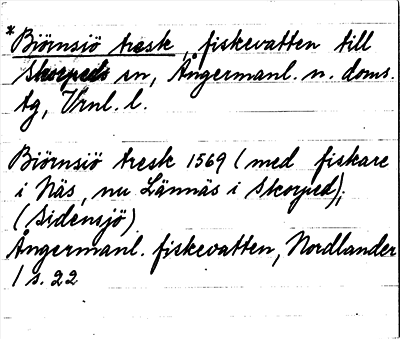 *Björnsjö tresk, fiskevatten till
Skorpeds sn, Ångermanl. n. doms.
tg, Vrnl. l.
Biörnsiö tresk 1569 (med fiskare
i Näs, nu Lännäs i Skorped);
(Sidensjö)
Ångermanl. fiskevatten, Nordlander
1 s. 22